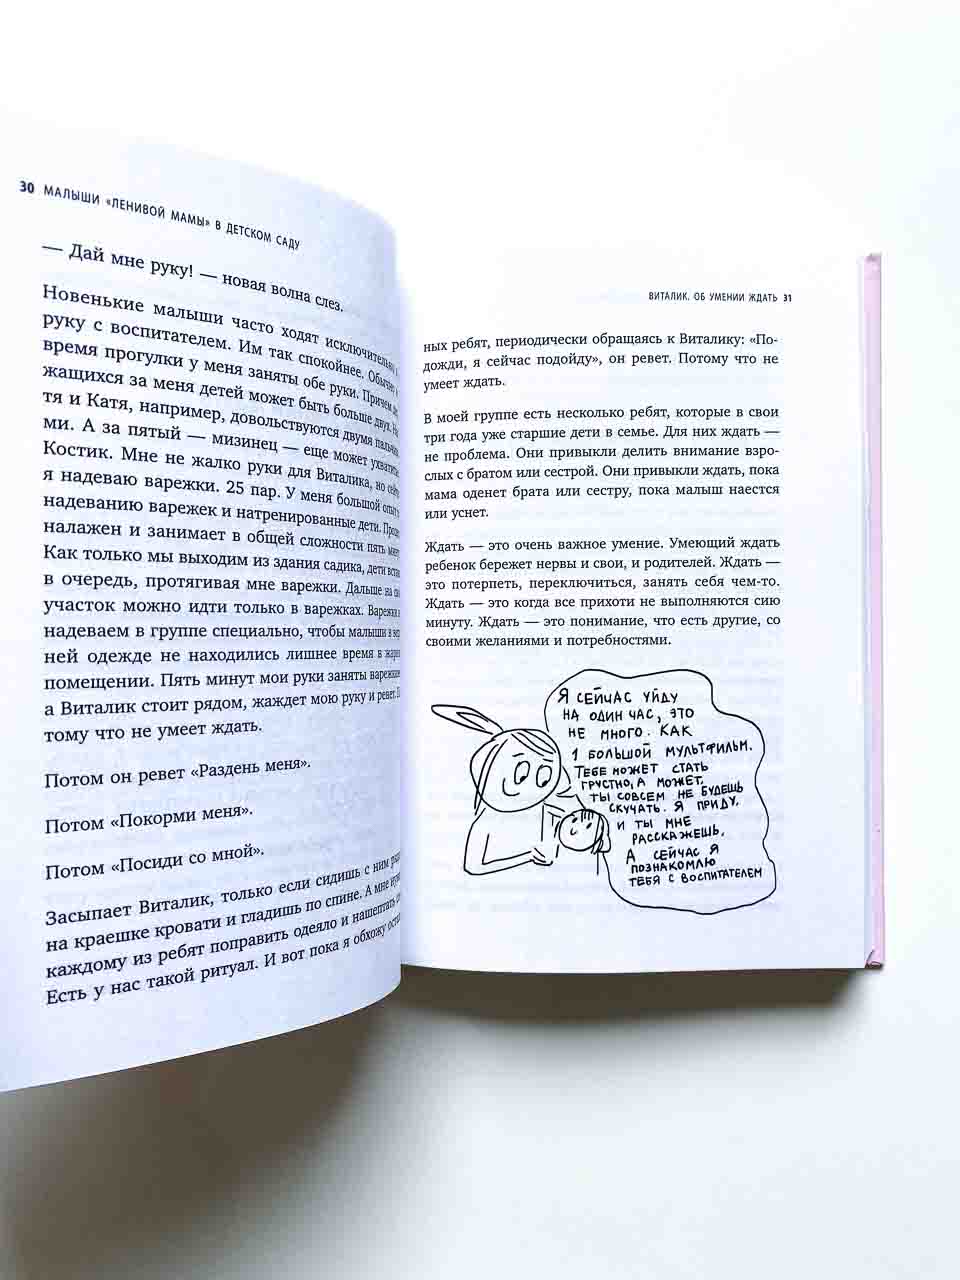 30 МАЛЫШИ «ЛЕНИВОЙ МАМЫ» В ДЕТСКОМ САДУ
— Дай мне руку! — новая волна слез.
Новенькие малыши часто ходят исключительно
руку с воспитателем. Им так спокойнее. Обычно
время прогулки у меня заняты обе руки. Причем
жащихся за меня детей может быть больше двух.
тя и Катя, например, довольствуются двумя пальчи
ми. А за пятый — мизинец — еще может ухватить
Костик. Мне не жалко руки для Виталика, но
я надеваю варежки. 25 пар. У меня большой опыт
надеванию варежек и натренированные дети.
налажен и занимает в общей сложности пять
Как только мы выходим из здания садика, дети
в очередь, протягивая мне варежки. Дальше на
участок можно идти только в варежках. Варежки
надеваем в группе специально, чтобы малыши в
ней одежде не находились лишнее время в
помещении. Пять минут мои руки заняты
а Виталик стоит рядом, жаждет мою руку и ревет.
тому что не умеет ждать.
Потом он ревет «Раздень меня».
Потом «Покорми меня».
Потом «Посиди со мной».
Засыпает Виталик, только если сидишь с ним
на краешке кровати и гладишь по спине. А мне
каждому из ребят поправить одеяло и нашептать
Есть у нас такой ритуал. И вот пока я обхожу
ВИТАЛИК. ОБ УМЕНИИ ЖДАТЬ 31
ных ребят, периодически обращаясь к Виталику: «По-
дожди, я сейчас подойду», он ревет. Потому что не
умеет ждать.
В моей группе есть несколько ребят, которые в свои
три года уже старшие дети в семье. Для них ждать —
не проблема. Они привыкли делить внимание взро-
слых с братом или сестрой. Они привыкли ждать, пока
мама оденет брата или сестру, пока малыш наестся
или уснет.
Ждать — это очень важное умение. Умеющий ждать
ребенок бережет нервы и свои, и родителей. Ждать —
это потерпеть, переключиться, занять себя чем-то.
Ждать — это когда все прихоти не выполняются сию
минуту. Ждать — это понимание, что есть другие, со
своими желаниями и потребностями.
Я СЕЙЧАС УЙДУ
НА ОДИН ЧАС, ЭТО
НЕ МНОГО. КАК
1 БОЛЬШОЙ МУЛЬТФИЛЬМ.
ТЕБЕ МОЖЕТ СТАТЬ
ГРУСТНО, А МОЖЕТ,
ТЫ СОВСЕМ НЕ БУДЕШЬ
СКУЧАТЬ. Я ПРИДУ,
И ТЫ МНЕ
РАССКАЖЕШЬ.
А СЕЙЧАС Я
ПОЗНАКОМЛЮ
ТЕБЯ С ВОСПИТАТЕЛЕМ